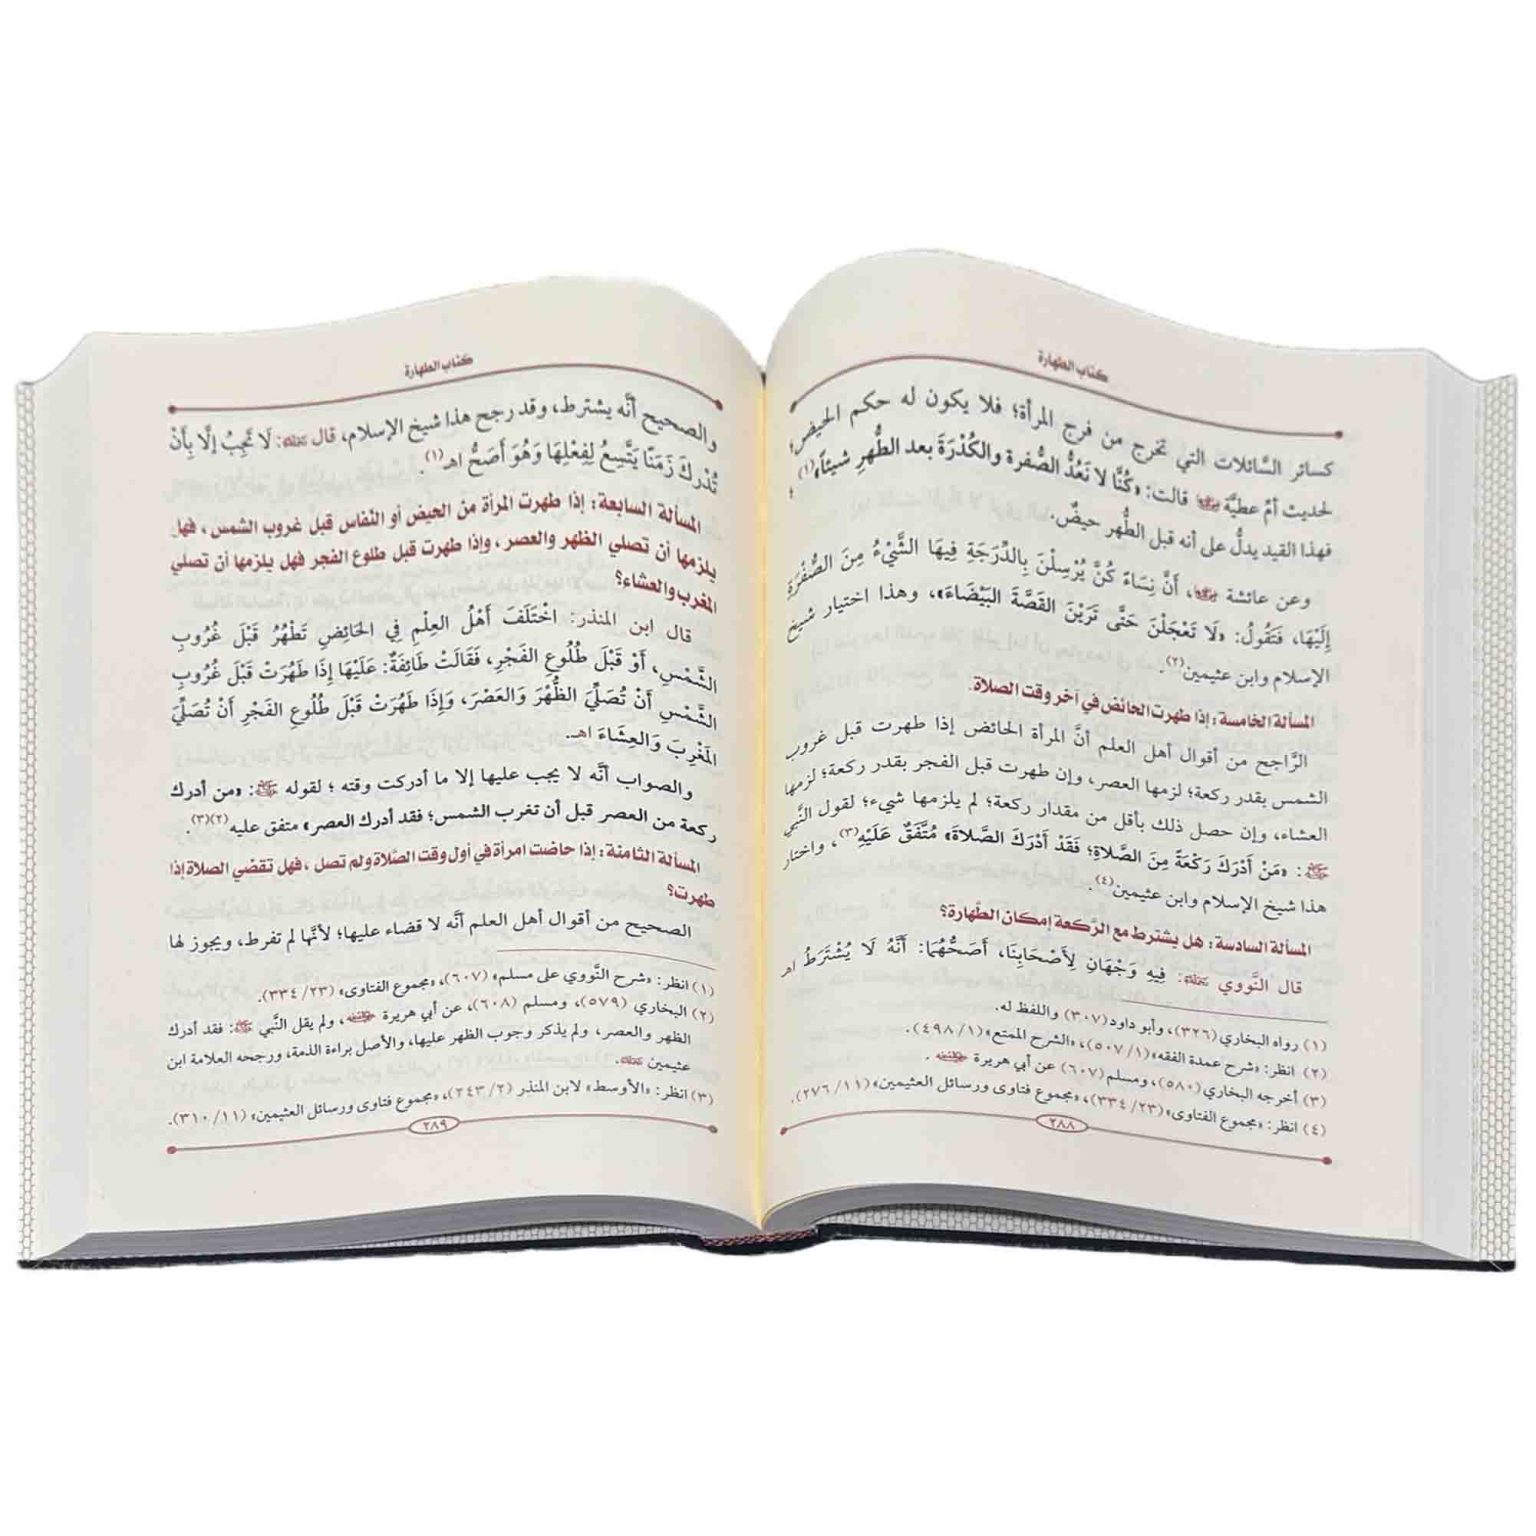 كتاب الطهارة
كسائر السَّائلات التي تخرج من فرج المرأة؛ فلا يكون له حكم الحيض؛
لحديث أمِّ عطيَّة رضي الله عنها قالت: «كُنَّا لا نَعُدُّ الصُّفرة والكُدْرَةَ بعد الطُّهرِ شيئاً»(١)؛
فهذا القيد يدلُّ على أنه قبل الطُّهر حيضٌ.
وعن عائشة رضي الله عنها، أَنَّ نِسَاءً كُنَّ يُرْسِلْنَ بِالدِّرَجَةِ فِيهَا الشَّيْءُ مِنَ الصُّفْرَةِ
إِلَيْهَا، فَتَقُولُ: «لَا تَعْجَلْنَ حَتَّى تَرَيْنَ القَصَّةَ البَيْضَاءَ»، وهذا اختيار شيخ
الإسلام وابن عثيمين(٢).
المسألة الخامسة: إذا طهرت الحائض في آخر وقت الصلاة.
الرَّاجح من أقوال أهل العلم أنَّ المرأة الحائض إذا طهرت قبل غروب
الشمس بقدر ركعة؛ لزمها العصر، وإن طهرت قبل الفجر بقدر ركعة؛ لزمها
العشاء، وإن حصل ذلك بأقل من مقدار ركعة؛ لم يلزمها شيء؛ لقول النَّبي
ﷺ: «مَنْ أَدْرَكَ رَكْعَةً مِنَ الصَّلاةِ؛ فَقَدْ أَدْرَكَ الصَّلاةَ» مُتَّفَقٌ عَلَيْهِ(٣)، واختار
هذا شيخ الإسلام وابن عثيمين(٤).
المسألة السادسة: هل يشترط مع الرَّكعة إمكان الطَّهارة؟
قال النَّووي رحمه الله: فِيهِ وَجْهَانِ لِأَصْحَابِنَا، أَصَحُّهُمَا: أَنَّهُ لَا يُشْتَرَطُ اهـ
(١) رواه البخاري (٣٢٦)، وأبو داود (٣٠٧) واللفظ له.
(٢) انظر: «شرح عمدة الفقه» (١/ ٥٠٧)، «الشرح الممتع» (١/ ٤٩٨).
(٣) أخرجه البخاري (٥٨٠)، ومسلم (٦٠٧) عن أبي هريرة رضي الله عنه.
(٤) انظر: «مجموع الفتاوى» (٢٣/ ٣٣٤)، «مجموع فتاوى ورسائل العثيمين» (١١/ ٢٧٦).
٢٨٨
كتاب الطهارة
والصحيح أنَّه يشترط، وقد رجح هذا شيخ الإسلام، قال رحمه الله: لَا تَجِبُ إلَّا بِأَنْ
تُدْرِكَ زَمَنًا يَتَّسِعُ لِفِعْلِهَا وَهُوَ أَصَحُّ اهـ(١).
المسألة السابعة: إذا طهرت المرأة من الحيض أو النِّفاس قبل غروب الشمس، فهل
يلزمها أن تصلي الظهر والعصر، وإذا طهرت قبل طلوع الفجر فهل يلزمها أن تصلي
المغرب والعشاء؟
قال ابن المنذر: اخْتَلَفَ أَهْلُ العِلْمِ فِي الحَائِضِ تَطْهُرُ قَبْلَ غُرُوبِ
الشَّمْسِ، أَوْ قَبْلَ طُلُوعِ الفَجْرِ، فَقَالَتْ طَائِفَةٌ: عَلَيْهَا إِذَا طَهُرَتْ قَبْلَ غُرُوبِ
الشَّمْسِ أَنْ تُصَلِّيَ الظُّهْرَ وَالعَصْرَ، وَإِذَا طَهُرَتْ قَبْلَ طُلُوعِ الفَجْرِ أَنْ تُصَلِّيَ
المَغْرِبَ وَالعِشَاءَ اهـ.
والصواب أنَّه لا يجب عليها إلا ما أدركت وقته؛ لقوله ﷺ: «من أدرك
ركعة من العصر قبل أن تغرب الشمس؛ فقد أدرك العصر» متفق عليه(٢)(٣).
المسألة الثامنة: إذا حاضت امرأة في أول وقت الصَّلاة ولم تصل، فهل تقضي الصلاة إذا
طهرت؟
الصحيح من أقوال أهل العلم أنَّه لا قضاء عليها؛ لأنَّها لم تفرط، ويجوز لها
(١) انظر: «شرح النَّووي على مسلم» (٦٠٧)، «مجموع الفتاوى» (٢٣/ ٣٣٤).
(٢) البخاري (٥٧٩)، ومسلم (٦٠٨)، عن أبي هريرة رضي الله عنه، ولم يقل النَّبي ﷺ: فقد أدرك
الظهر والعصر، ولم يذكر وجوب الظهر عليها، والأصل براءة الذمة، ورجحه العلامة ابن
عثيمين رحمه الله.
(٣) انظر: «الأوسط» لابن المنذر (٢/ ٢٤٣)، «مجموع فتاوى ورسائل العثيمين» (١١/ ٣١٠).
٢٨٩